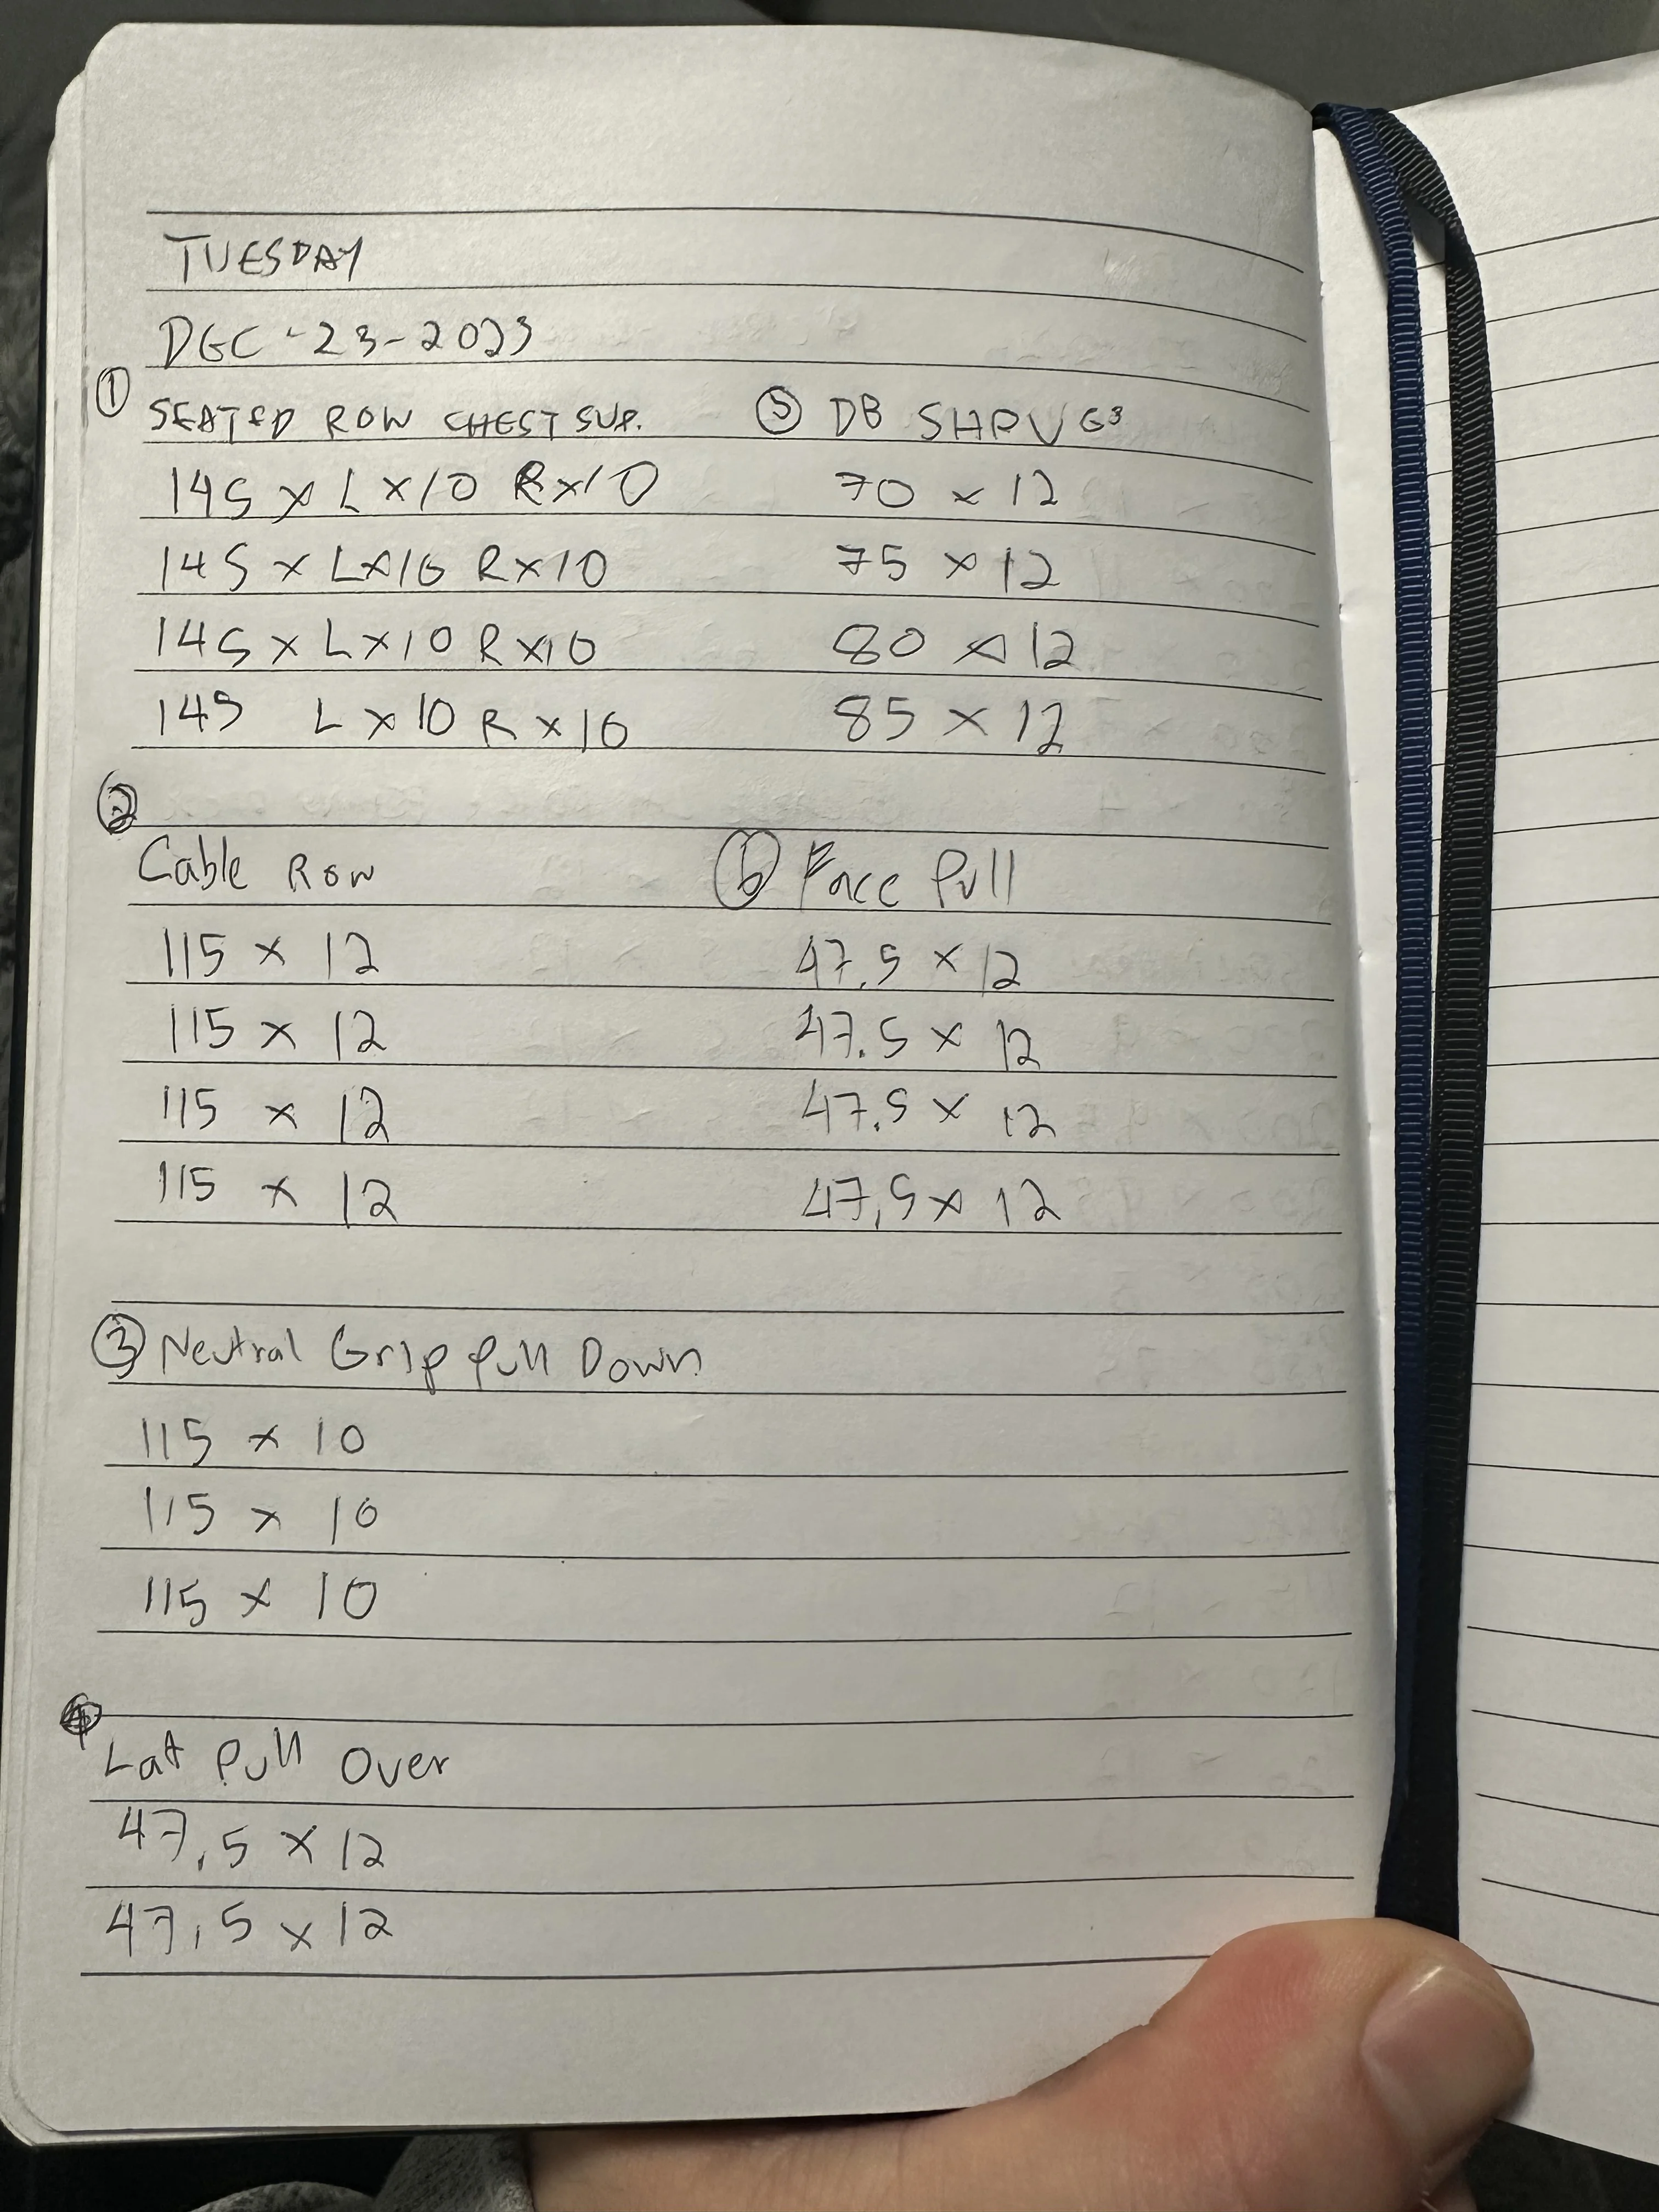 TUESDAY
DEC-23-2023
① SEATED ROW CHEST SUP.
145 x L x10 R x10
145 x L x10 R x10
145 x L x10 R x10
145 L x 10 R x 10
②
Cable Row
115 x 12
115 x 12
115 x 12
115 x 12
③ Neutral Grip Pull Down
115 x 10
115 x 10
115 x 10
4
Lat Pull Over
47,5 x 12
47,5 x 12
⑤ DB SHRUGS
70 x 12
75 x 12
80 x 12
85 x 12
⑥ Face Pull
47.5 x 12
47.5 x 12
47.5 x 12
47,5 x 12